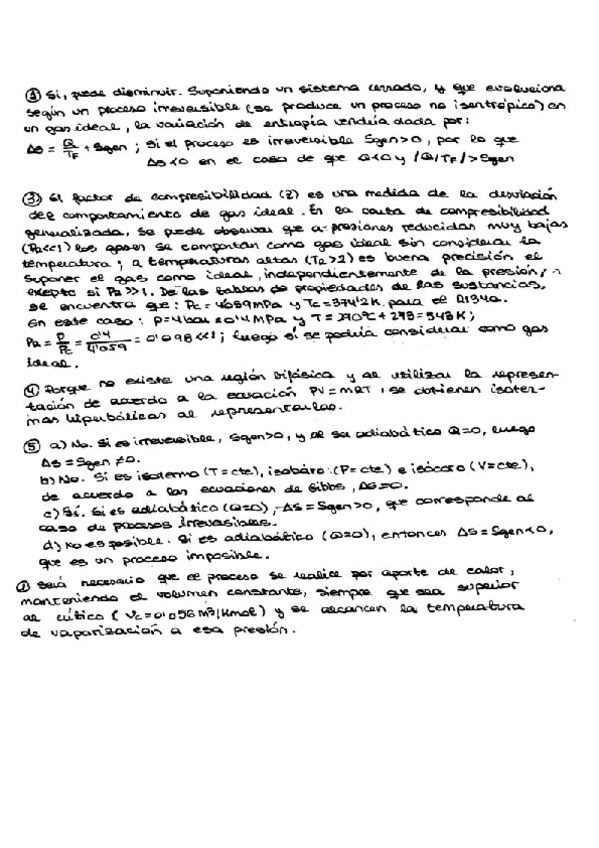 ① Sí, puede disminuir. Suponiendo un sistema cerrado, y que evoluciona
según un proceso irreversible (se produce un proceso no isentrópico) en
un gas ideal, la variación de entropía vendría dada por:
Δs = Q/TF + Sgen ; Si el proceso es irreversible Sgen>0, por lo que
Δs<0 en el caso de que Q<0 y |Q/TF| > Sgen
③ El factor de compresibilidad (Z) es una medida de la desviación
del comportamiento de gas ideal. En la carta de compresibilidad
generalizada, se puede observar que a presiones reducidas muy bajas
(PR<<1) los gases se comportan como gas ideal sin considerar la
temperatura; a temperaturas altas (TR>2) es buena precisión el
suponer el gas como ideal, independientemente de la presión,
excepto si PR>>1. De las tablas de propiedades de las sustancias,
se encuentra que: Pc = 4'059MPa y Tc = 374'2K para el R134a.
En este caso: P=4bar=0'4MPa y T=270ºC+273=543K;
PR = P/Pc = 0'4/4'059 = 0'098<<1; luego sí se podría considerar como gas
ideal.
④ Porque no existe una región bifásica y al utilizar la represen-
tación de acuerdo a la ecuación PV=mRT, se obtienen isoter-
mas hiperbólicas al representarlas.
⑤ a) No. Si es irreversible, Sgen>0, y al ser adiabático Q=0, luego
Δs = Sgen ≠ 0.
b) No. Si es isotermo (T=cte), isobáro (P=cte) e isócoro (V=cte),
de acuerdo a las ecuaciones de Gibbs, Δs=0.
c) Sí. Si es adiabático (Q=0), Δs = Sgen>0, que corresponde al
caso de procesos irreversibles.
d) No es posible. Si es adiabático (Q=0), entonces Δs = Sgen<0,
que es un proceso imposible.
Será necesario que el proceso se realice por aporte de calor,
manteniendo el volumen constante, siempre que sea superior
al crítico (Vc=0'056 m³/Kmol) y se alcancen la temperatura
de vaporización a esa presión.